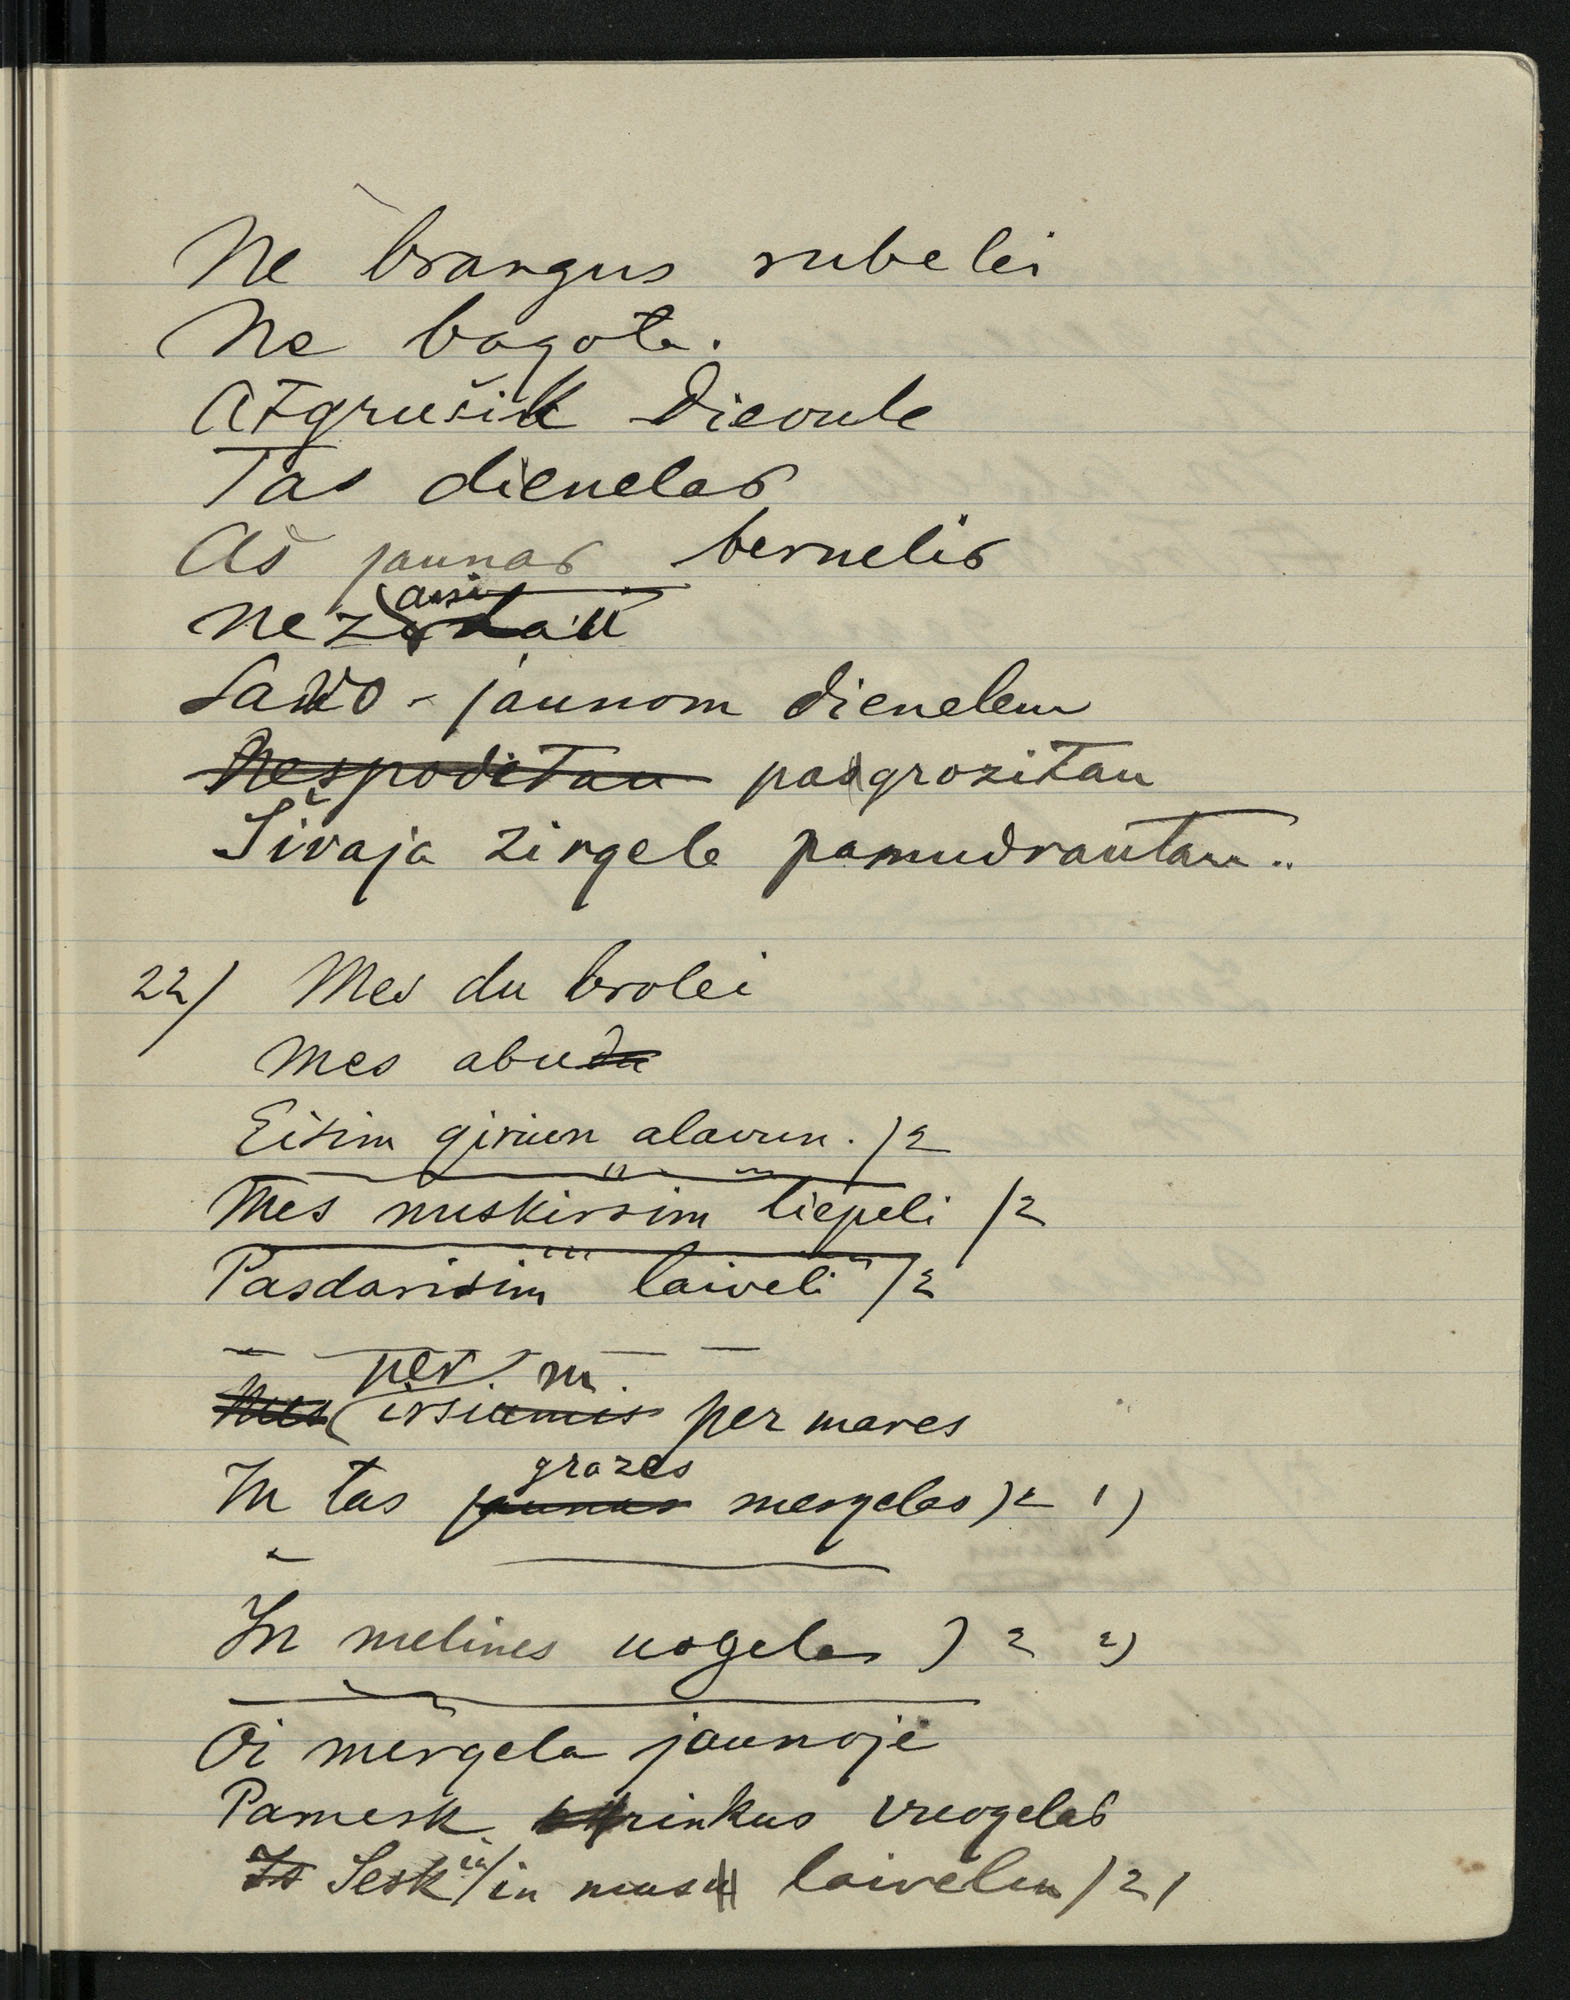 Ne brangus rubelei
Ne bagota.
Atgrušik Dievule
Tas dienelas
Aš jaunas bernelis
Savo - jaunom dienelem
Nešpoditau pasgrozitau
Širaja zirgele pamudrautau..
22) Mes du brolei
Mes abudu
Eisim giriun alavun. )2
Mes nuskirsim liepeli )2
Pasdarisim laiveli )2
per m.
Mes (irsiamis per mares
grazes
In tas jaunas mergelas )2 1)
In melines uogelas ) 2 2)
Oi mergela jaunoje
Pamesk rinkus vuogelas
Is Sesk in musu laivelun )2)